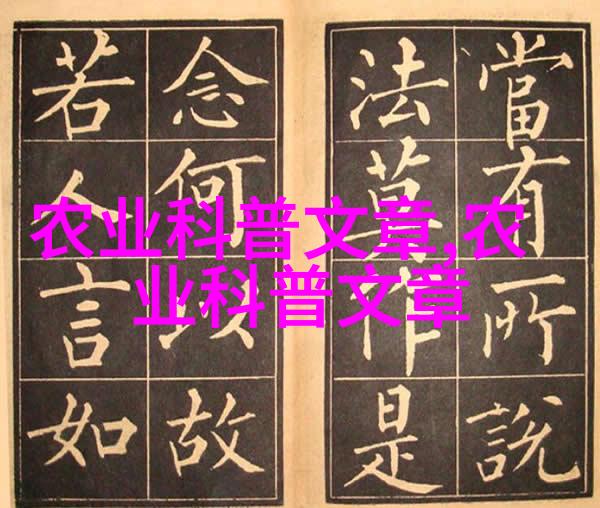 當有所說
法莫作是
念何以故
若人言如
农业科普文章,农
业科普文章